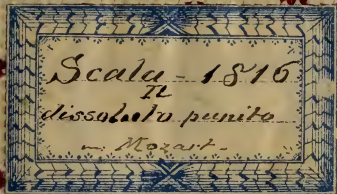 Scala - 1816
Il
dissoluto punito
m Mozart -